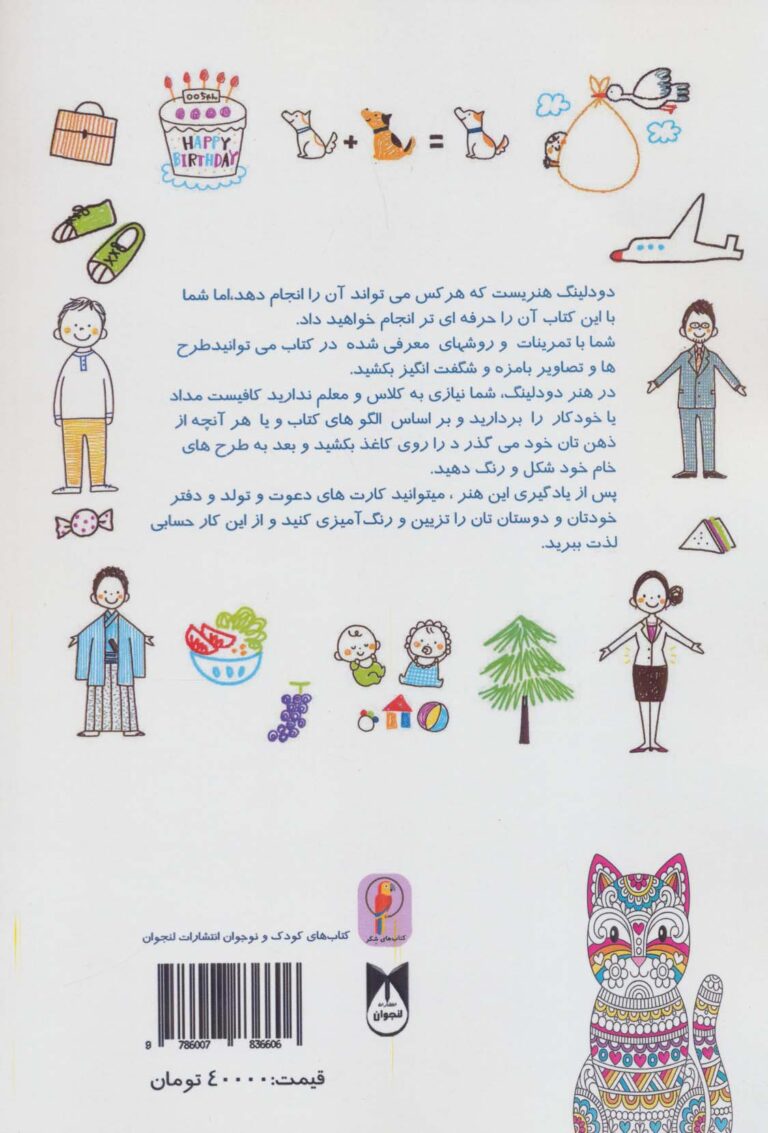 HAPPY
BIRTHDAY
دودلینگ هنریست که هرکس می تواند آن را انجام دهد،اما شما
با این کتاب آن را حرفه ای تر انجام خواهید داد.
شما با تمرینات و روشهای معرفی شده در کتاب می توانیدطرح
ها و تصاویر بامزه و شگفت انگیز بکشید.
در هنر دودلینگ، شما نیازی به کلاس و معلم ندارید کافیست مداد
یا خودکار را بردارید و بر اساس الگو های کتاب و یا هر آنچه از
ذهن تان خود می گذر د را روی کاغذ بکشید و بعد به طرح های
خام خود شکل و رنگ دهید.
پس از یادگیری این هنر ، میتوانید کارت های دعوت و تولد و دفتر
خودتان و دوستان تان را تزیین و رنگ‌آمیزی کنید و از این کار حسابی
لذت ببرید.
کتاب‌های شکر
کتاب‌های کودک و نوجوان انتشارات لنجوان
انتشارات
لنجوان
9 786007 836606
قیمت:۴۰۰۰۰ تومان